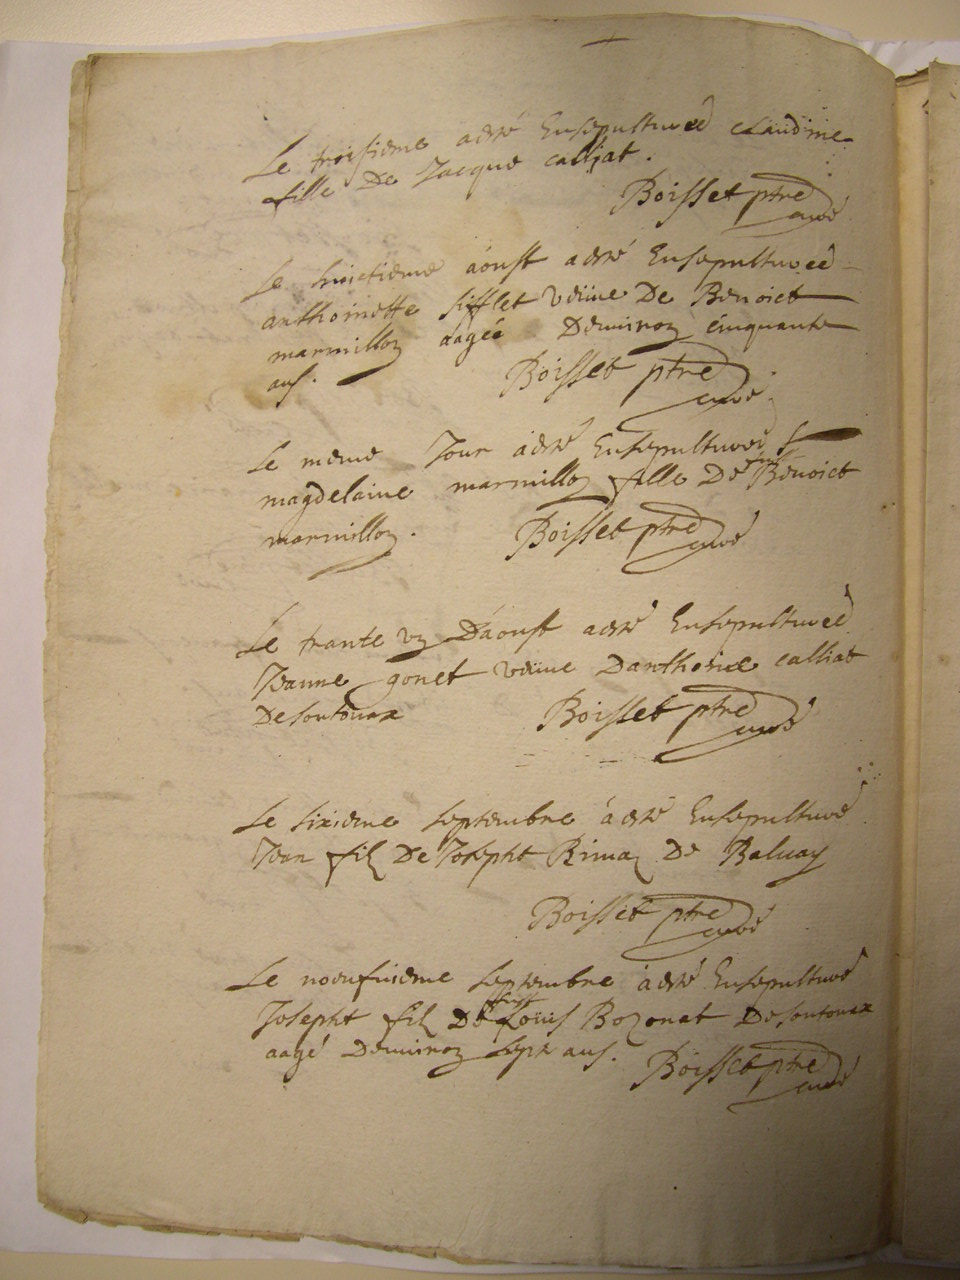 Le troisieme a esté Ensepulturéé claudine
fille De Jacque calliat.
Boisset ptre
curé
Le huictieme aoust a esté Ensepulturéé
anthoinette sifflet veüue De Benoict
marmillon aagéé Denuiron cinquante
ans. Boisset ptre
curé
Le meme Jour a esté Ensepulturéé
magdelaine marmillon fille De feu Benoict
marmillon. Boisset ptre
curé
Le trante un D'aoust a esté Ensepulturéé
Jeanne gonet veüue Danthoine calliat
De soutonax Boisset ptre
curé
Le sixieme septembre a esté Ensepulturé
Jean fil De Josepht De Baluay
Boisset ptre
curé
Le noeufuieme septembre a esté Ensepulturé
Josepht fil De feu Loüis Bozonat De soutonax
aagé Denuiron sept ans. Boisset ptre
curé